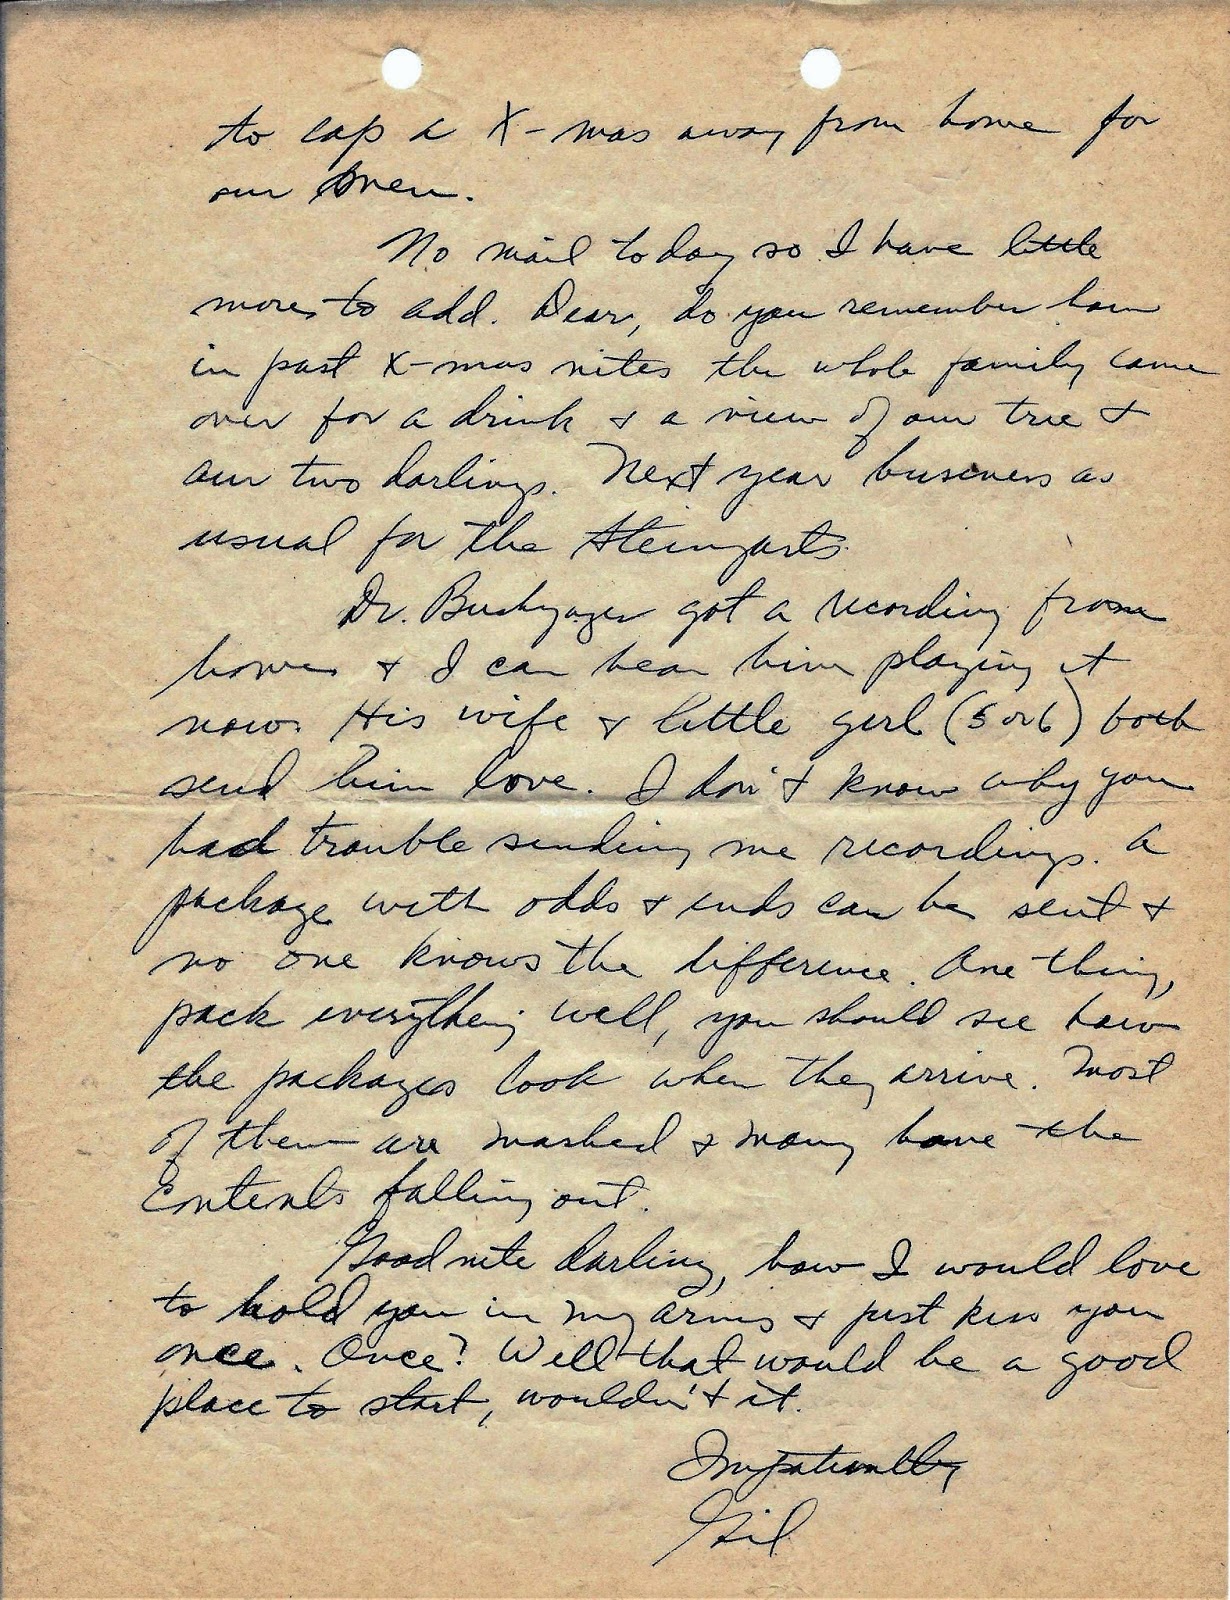 to cap a X-mas away from home for
our men.
No mail today so I have little
more to add. Dear, do you remember how
in past X-mas nites the whole family came
over for a drink & a view of our tree &
our two darlings. Next year business as
usual for the Steingarts.
Dr. got a recording from
home & I can hear him playing it
now. His wife & little girl (5 or 6) both
send him love. I don't know why you
had trouble sending me recordings. A
package with odds & ends can be sent &
no one knows the difference. One thing,
pack everything well, you should see how
the packages look when they arrive. Most
of them are mashed & many have the
contents falling out.
Goodnite darling, how I would love
to hold you in my arms & just kiss you
once. Once? Well that would be a good
place to start, wouldn't it.
Impatiently
Gil